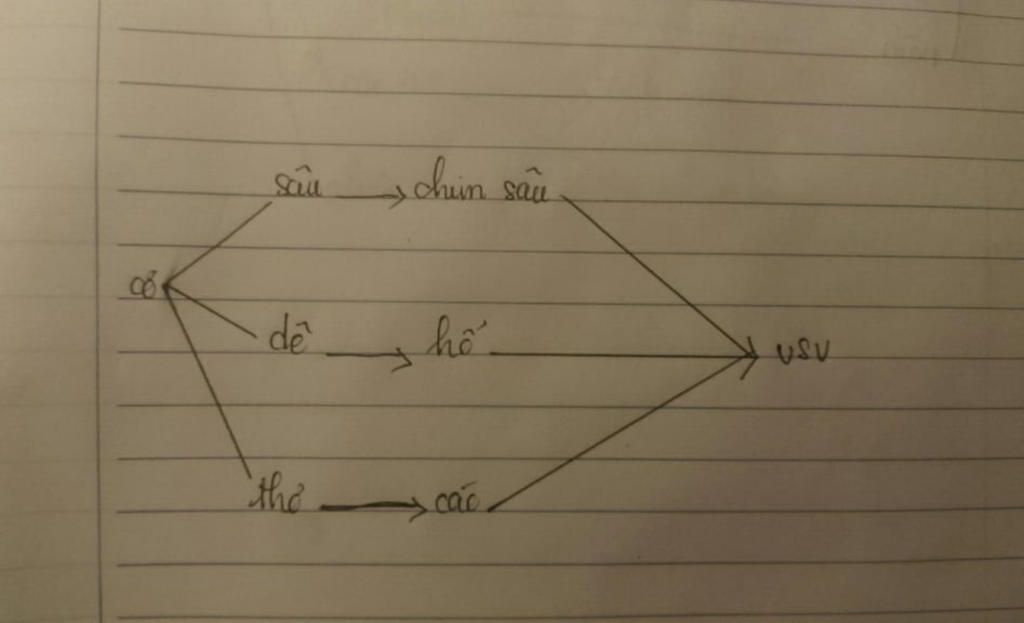 sâu chim sâu
cỏ
dê hổ
vsv
thỏ cáo